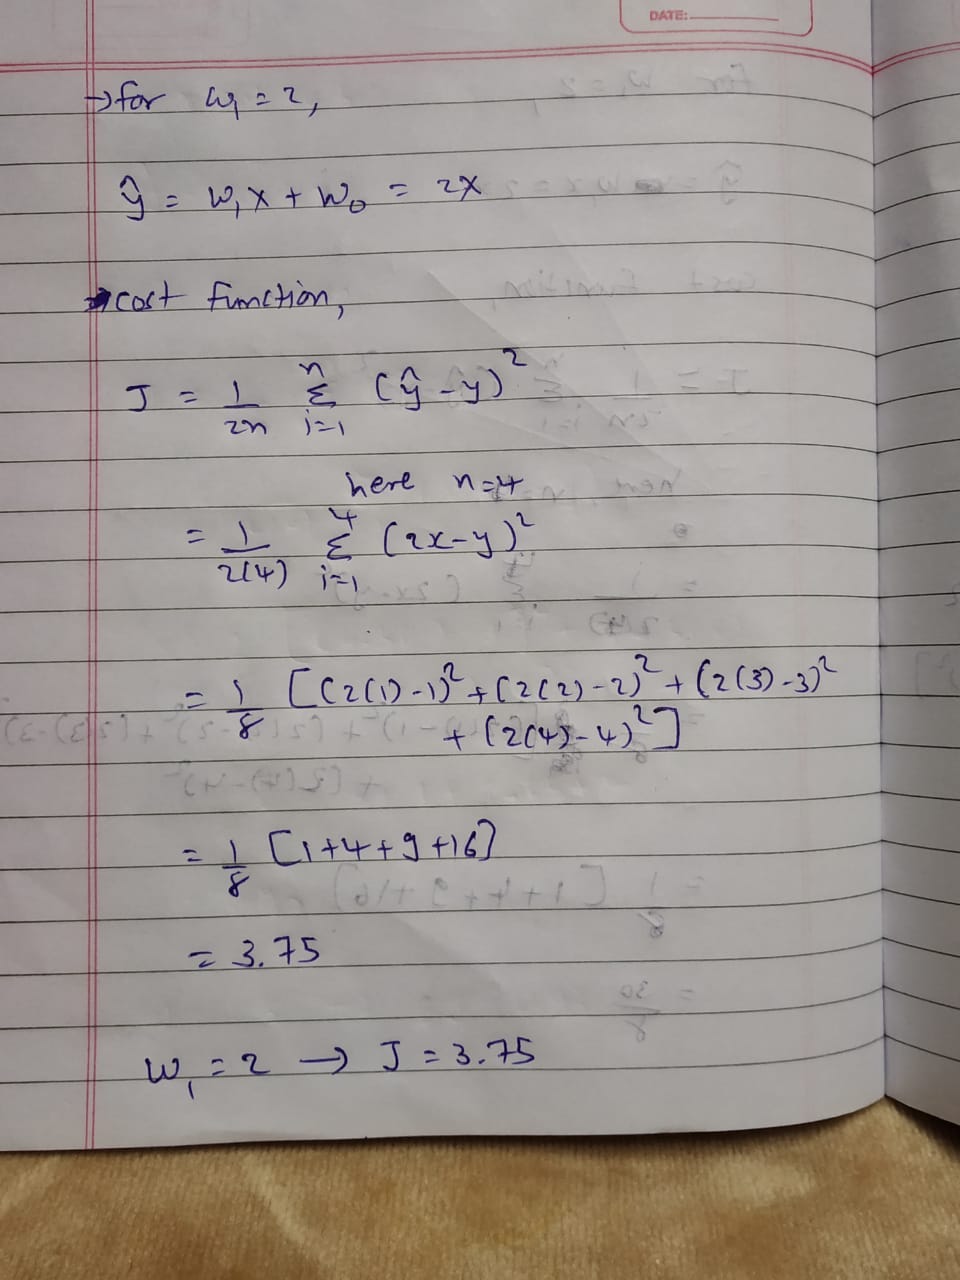 DATE:
→ for w₁ = 2,
ŷ = w₁x + w₀ = 2x
→ cost function,
J = 1/2n Σ_{i=1}^{n} (ŷ - y)²
here n=4
= 1/2(4) Σ_{i=1}^{4} (2x - y)²
= 1/8 [(2(1) - 1)² + (2(2) - 2)² + (2(3) - 3)²
+ (2(4) - 4)²]
= 1/8 [1 + 4 + 9 + 16]
= 3.75
w₁ = 2 → J = 3.75